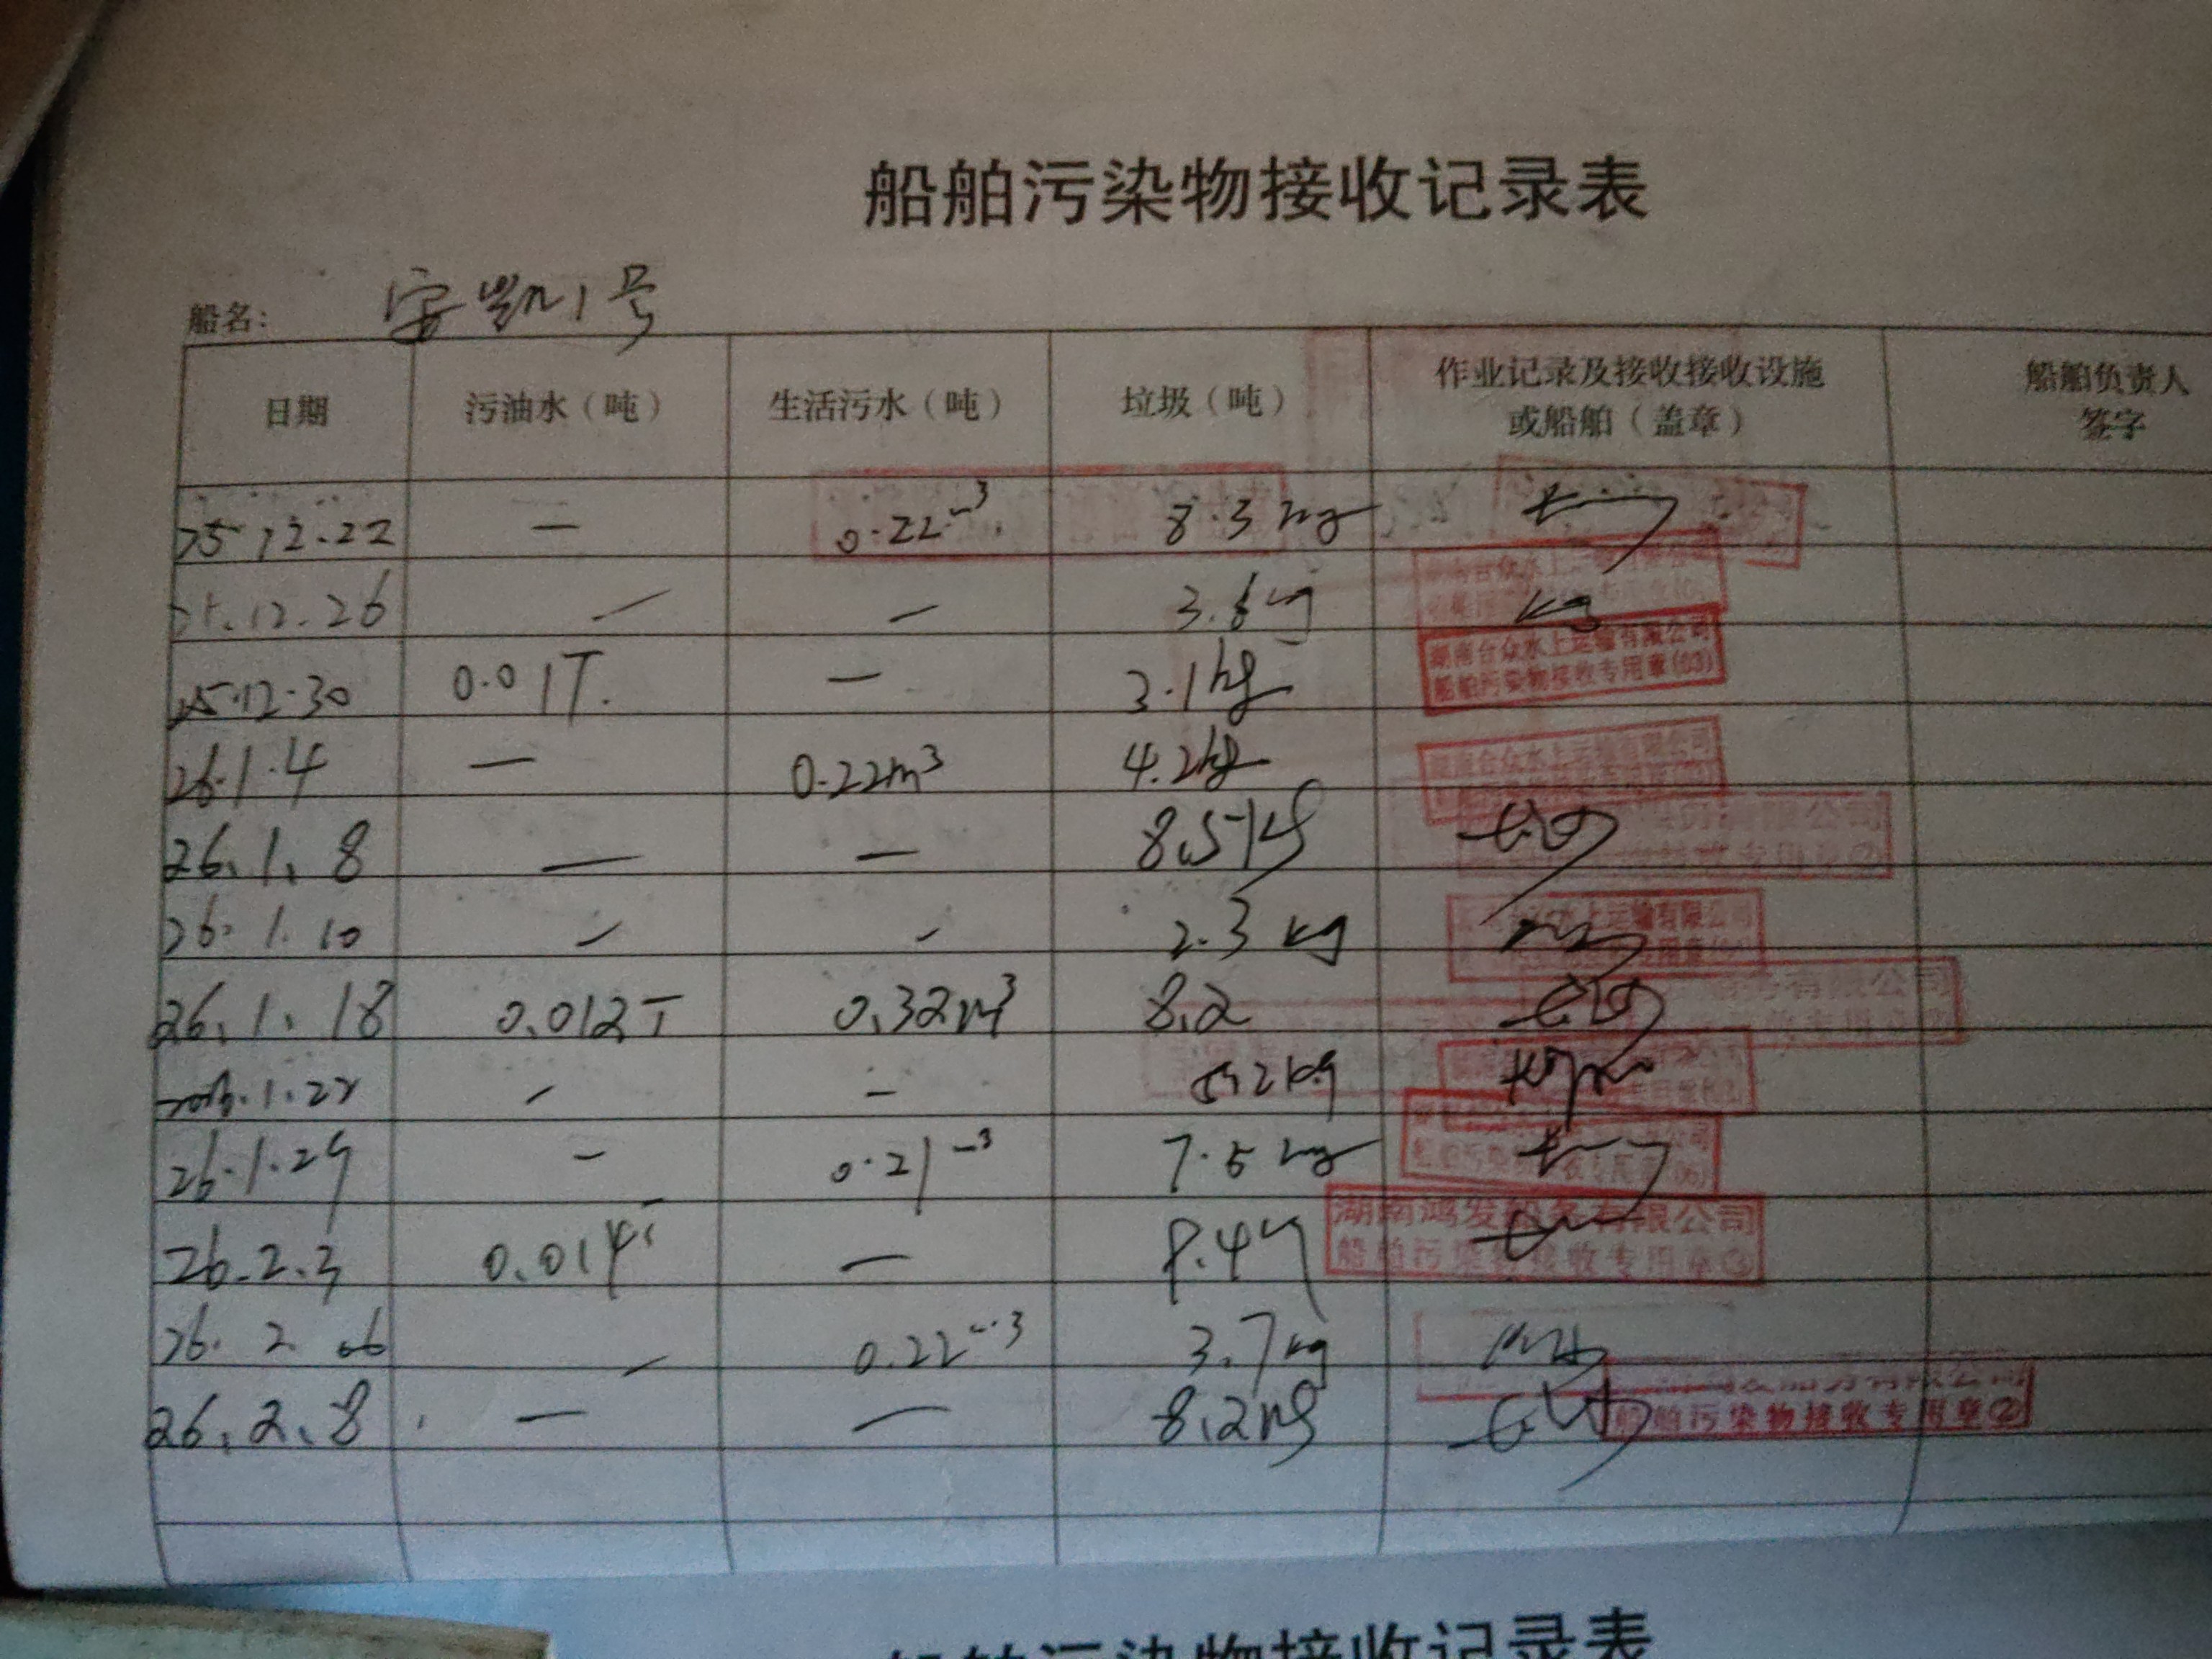 船舶污染物接收记录表
船名: 安凯1号
日期 污油水（吨） 生活污水（吨） 垃圾（吨） 作业记录及接收接收设施或船舶（盖章） 船舶负责人签字
25.12.22 — 0.22m³ 8.3kg
25.12.26 — — 3.6kg
25.12.30 0.01T. — 3.1kg 湖南台众水上运输有限公司 船舶污染物接收专用章(03)
26.1.4 — 0.22m³ 4.2kg 湖南台众水上运输有限公司
26.1.8 — — 8.5kg 有限公司
26.1.10 — — 2.3kg 水上运输有限公司
26.1.18 0.012T 0.32m³ 8.2 有限公司
2026.1.22 — — 2kg
26.1.29 — 0.21m³ 7.5kg
26.2.3 0.014 — 8.4 湖南鸿发船务有限公司 船舶污染物接收专用章
26.2.6 — 0.22m³ 3.7kg
26.2.8 — — 8.2kg 船舶污染物接收专用章②
船舶污染物接收记录表